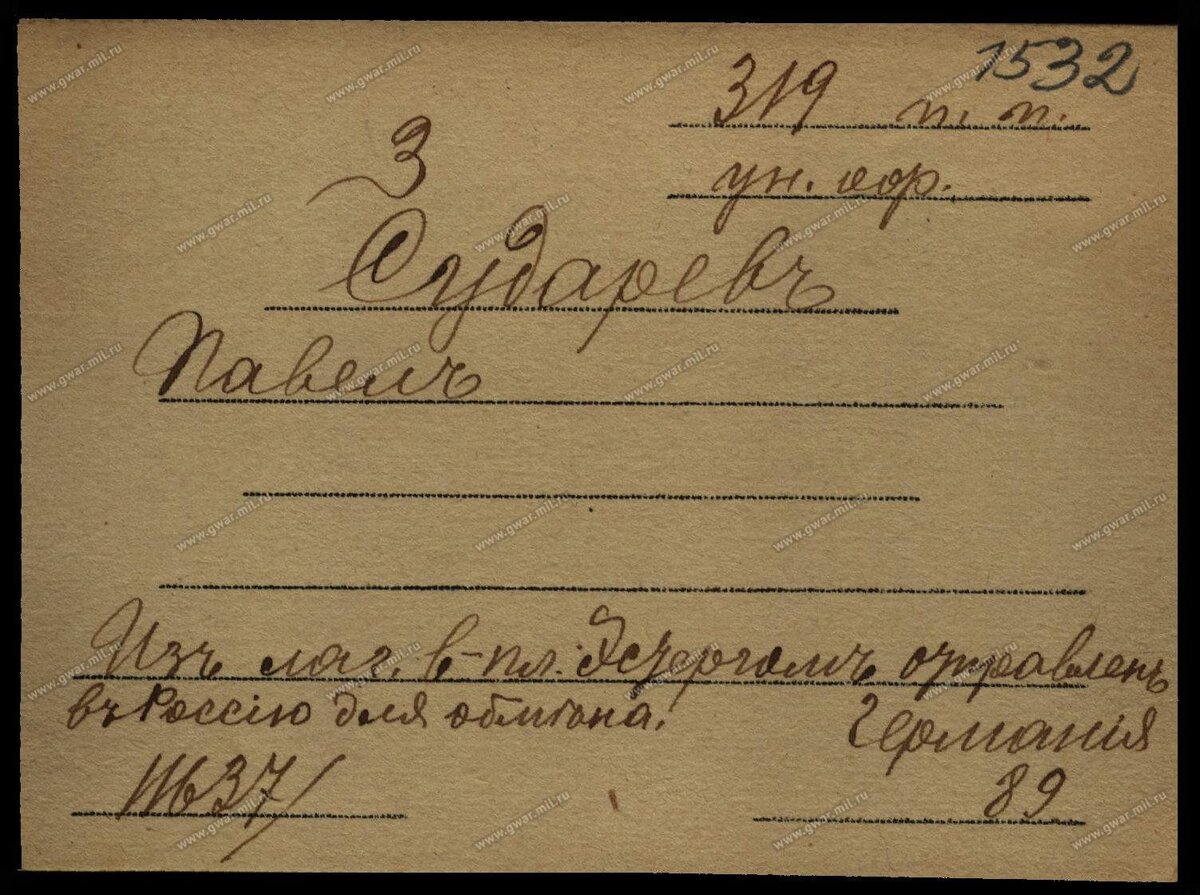 1532
319 п. п.
ун. оф.
3
Сударевъ
Павелъ
Изъ лаг. в-пл. Эстергомъ отправленъ
въ Россію для обмѣна.
Германія
89
www.gwar.mil.ru